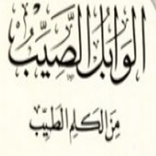 الوَابِلُ الصَّيِّبُ
مِنَ الكَلِمِ الطَّيِّبِ